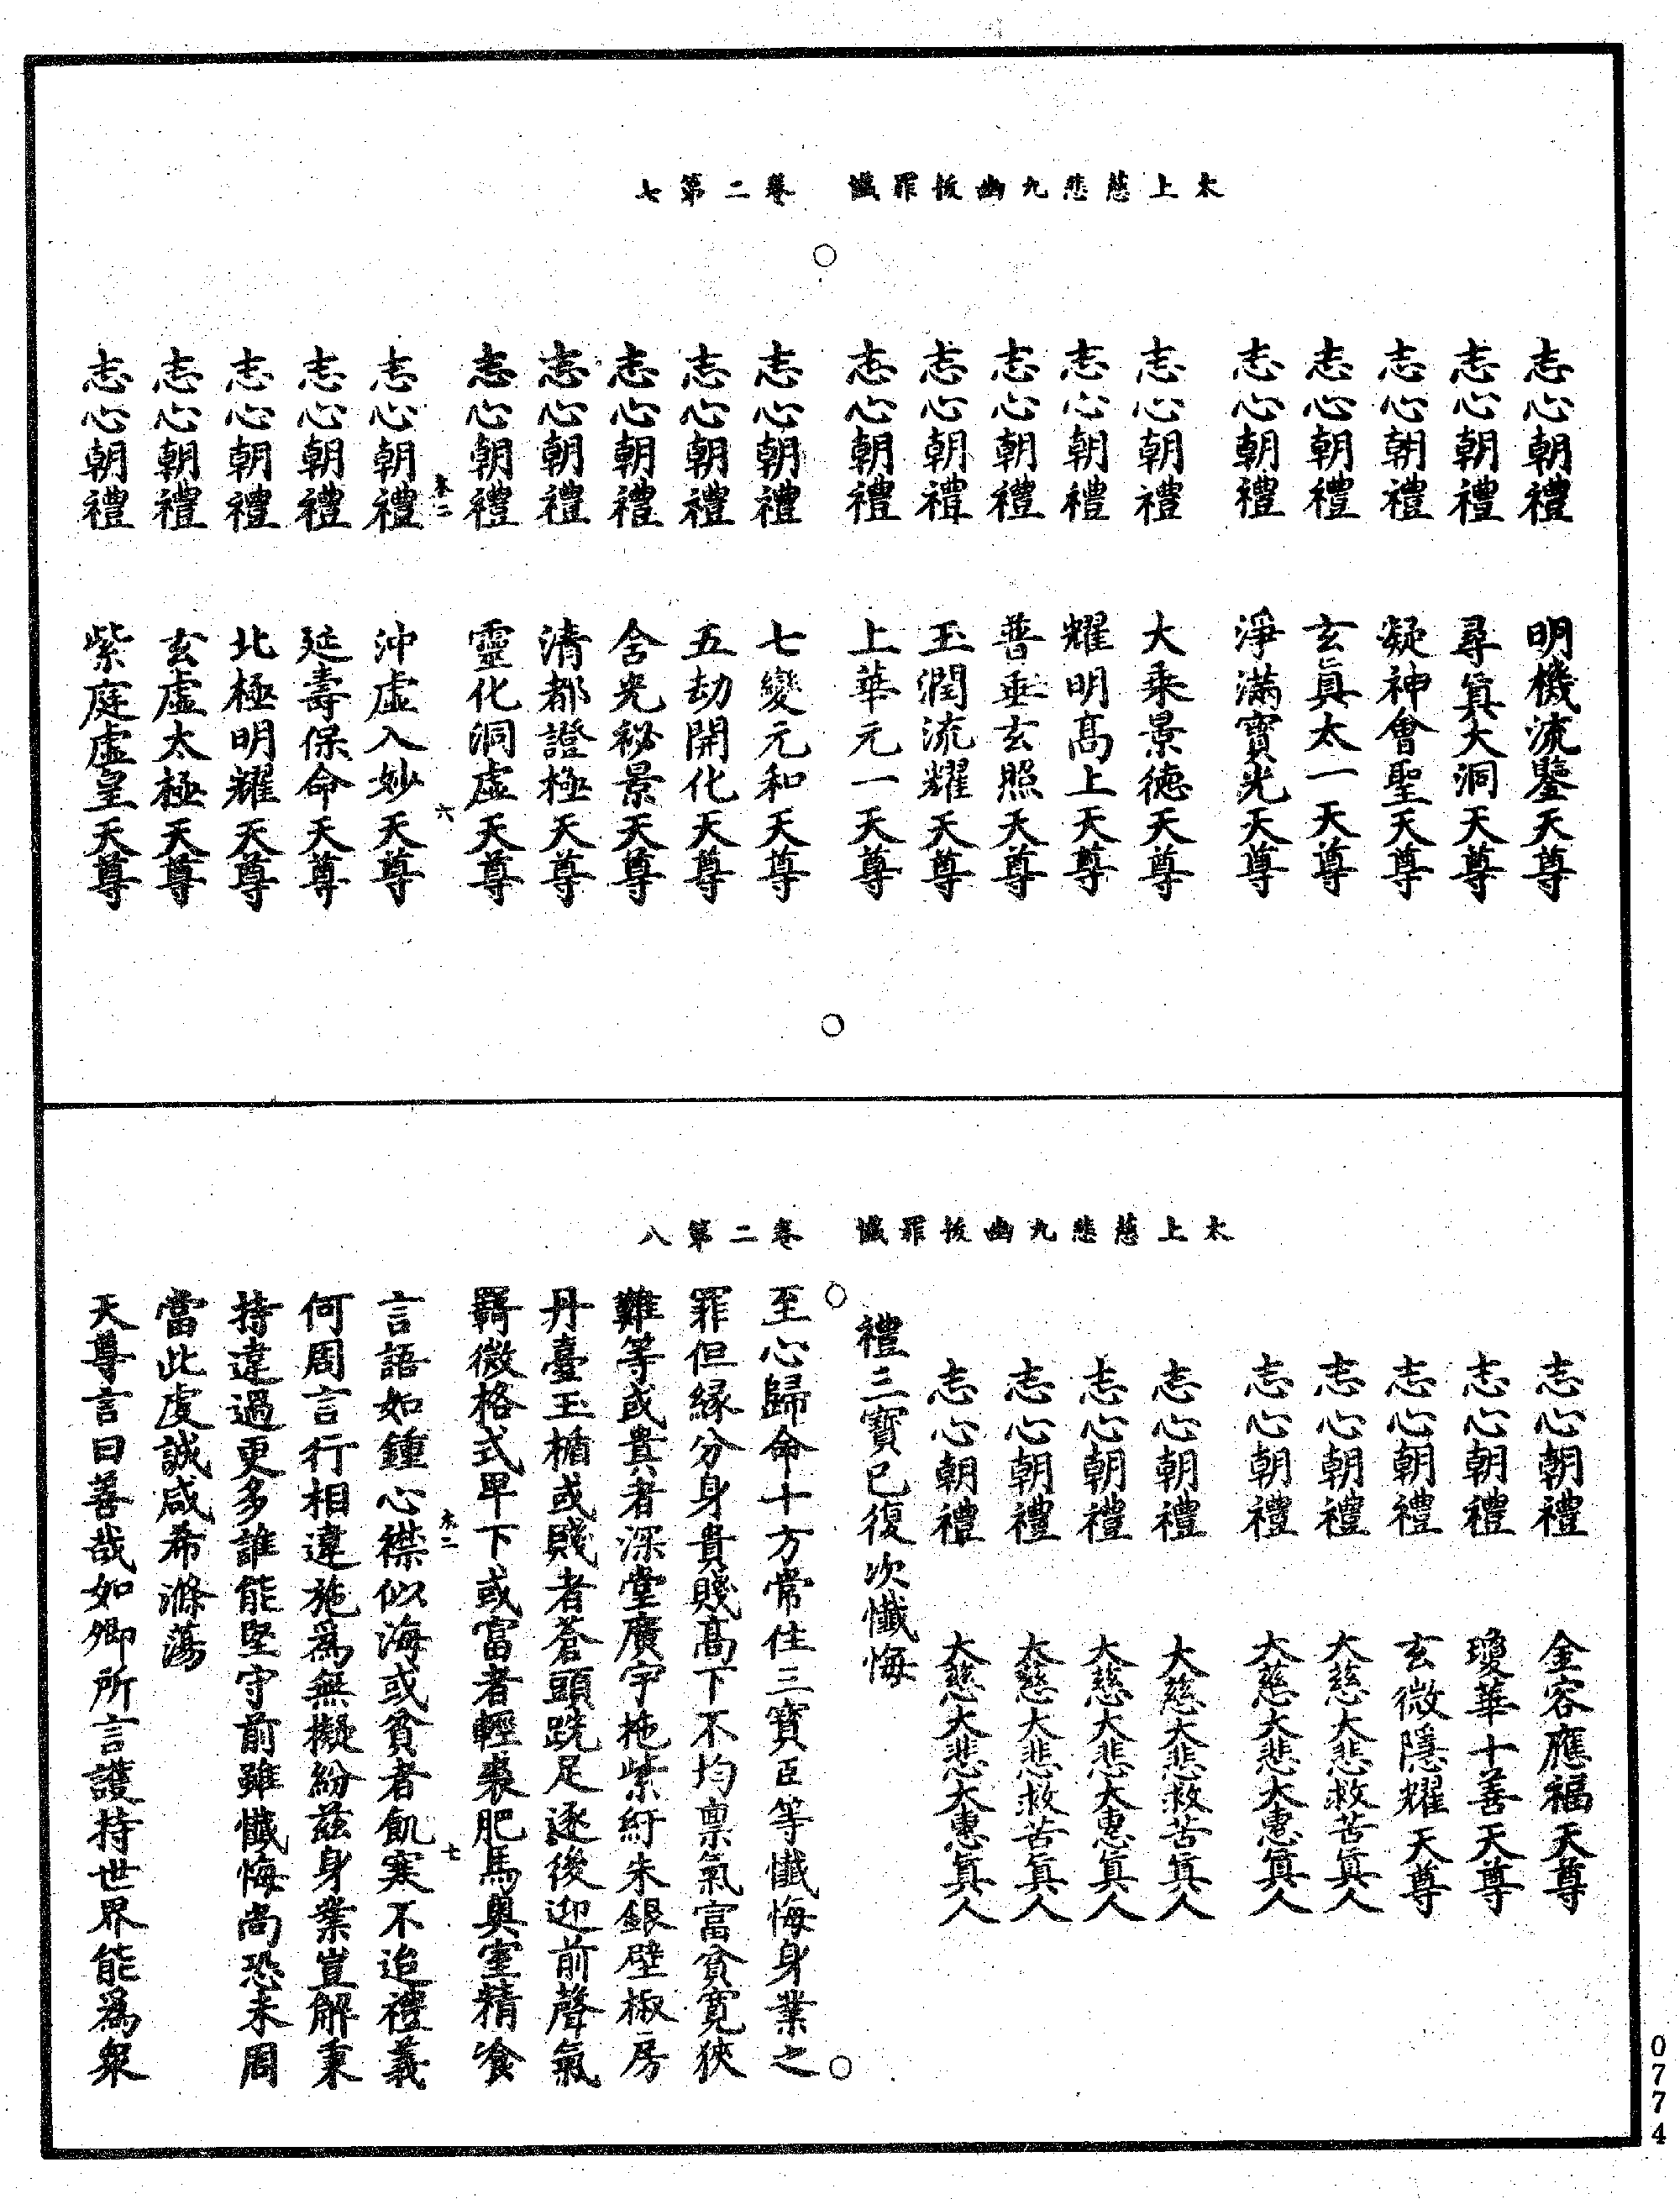 太上慈悲九幽拔罪懺　卷二第七
志心朝禮　明機流鑒天尊
志心朝禮　尋眞大洞天尊
志心朝禮　凝神會聖天尊
志心朝禮　玄眞太一天尊
志心朝禮　淨滿寶光天尊
志心朝禮　大乘景德天尊
志心朝禮　耀明高上天尊
志心朝禮　普垂玄照天尊
志心朝禮　玉潤流耀天尊
志心朝禮　上華元一天尊
志心朝禮　七變元和天尊
志心朝禮　五劫開化天尊
志心朝禮　含光祕景天尊
志心朝禮　清都證極天尊
志心朝禮　靈化洞虛天尊
卷二　六
志心朝禮　沖虛入妙天尊
志心朝禮　延壽保命天尊
志心朝禮　北極明耀天尊
志心朝禮　玄虛太極天尊
志心朝禮　紫庭虛皇天尊
太上慈悲九幽拔罪懺　卷二第八
志心朝禮　金容應福天尊
志心朝禮　瓊華十善天尊
志心朝禮　玄微隱耀天尊
志心朝禮　大慈大悲救苦眞人
志心朝禮　大慈大悲大惠眞人
志心朝禮　大慈大悲救苦眞人
志心朝禮　大慈大悲大惠眞人
志心朝禮　大慈大悲救苦眞人
志心朝禮　大慈大悲大惠眞人
禮三寶已復次懺悔
至心歸命十方常住三寶臣等懺悔身業之
罪但緣分身貴賤高下不均禀氣富貧寬狹
難等或貴者深堂廣宇拖紫紆朱銀壁椒房
丹臺玉楯或賤者蒼頭跣足逐後迎前聲氣
羇微格式卑下或富者輕裘肥馬奧室精飡
卷二　七
言語如鍾心襟似海或貧者飢寒不迨禮義
何周言行相違施爲無擬紛茲身業豈解秉
持違過更多誰能堅守前雖懺悔尚恐未周
當此虔誠咸希滌蕩
天尊言曰善哉如卿所言護持世界能爲衆
0774